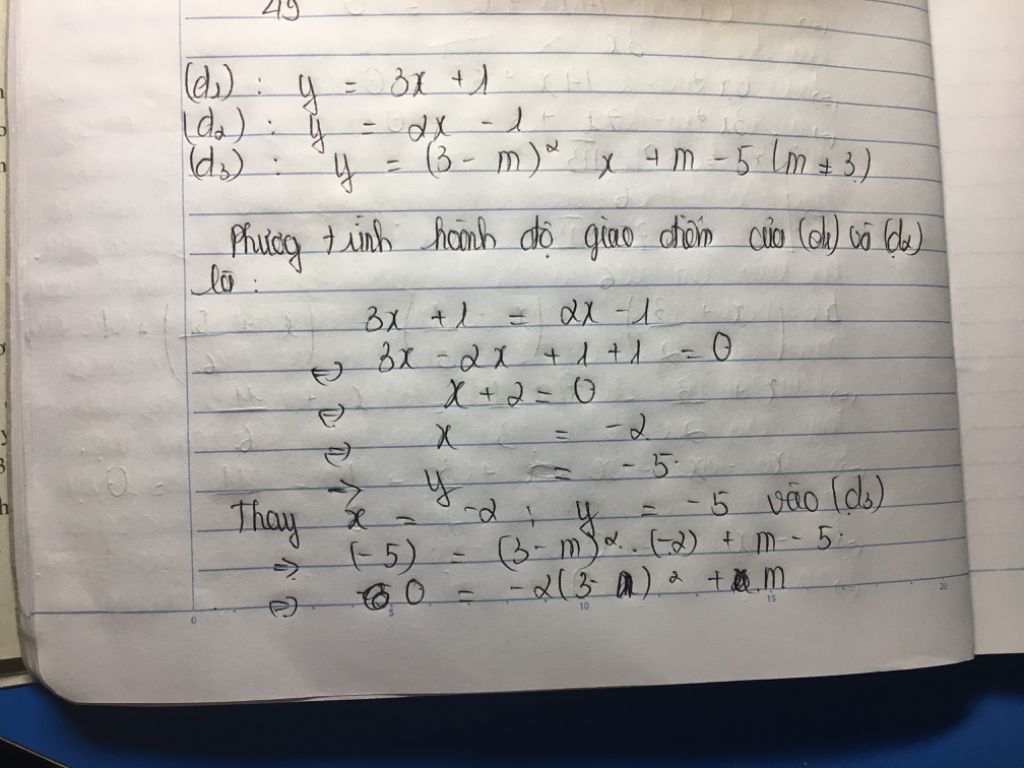 49
(d₁) : y = 3x + 1
(d₂) : y = 2x - 1
(d₃) : y = (3 - m)² x + m - 5 (m ≠ 3)
Phương trình hoành độ giao điểm của (d₁) và (d₂)
là :
3x + 1 = 2x - 1
⇔ 3x - 2x + 1 + 1 = 0
⇔ x + 2 = 0
⇔ x = -2
→ y = -5.
Thay x = -2 ; y = -5 vào (d₃)
⇒ (-5) = (3 - m)². (-2) + m - 5.
⇔ 0 = -2(3 - m)² + m
0 5 10 15 20